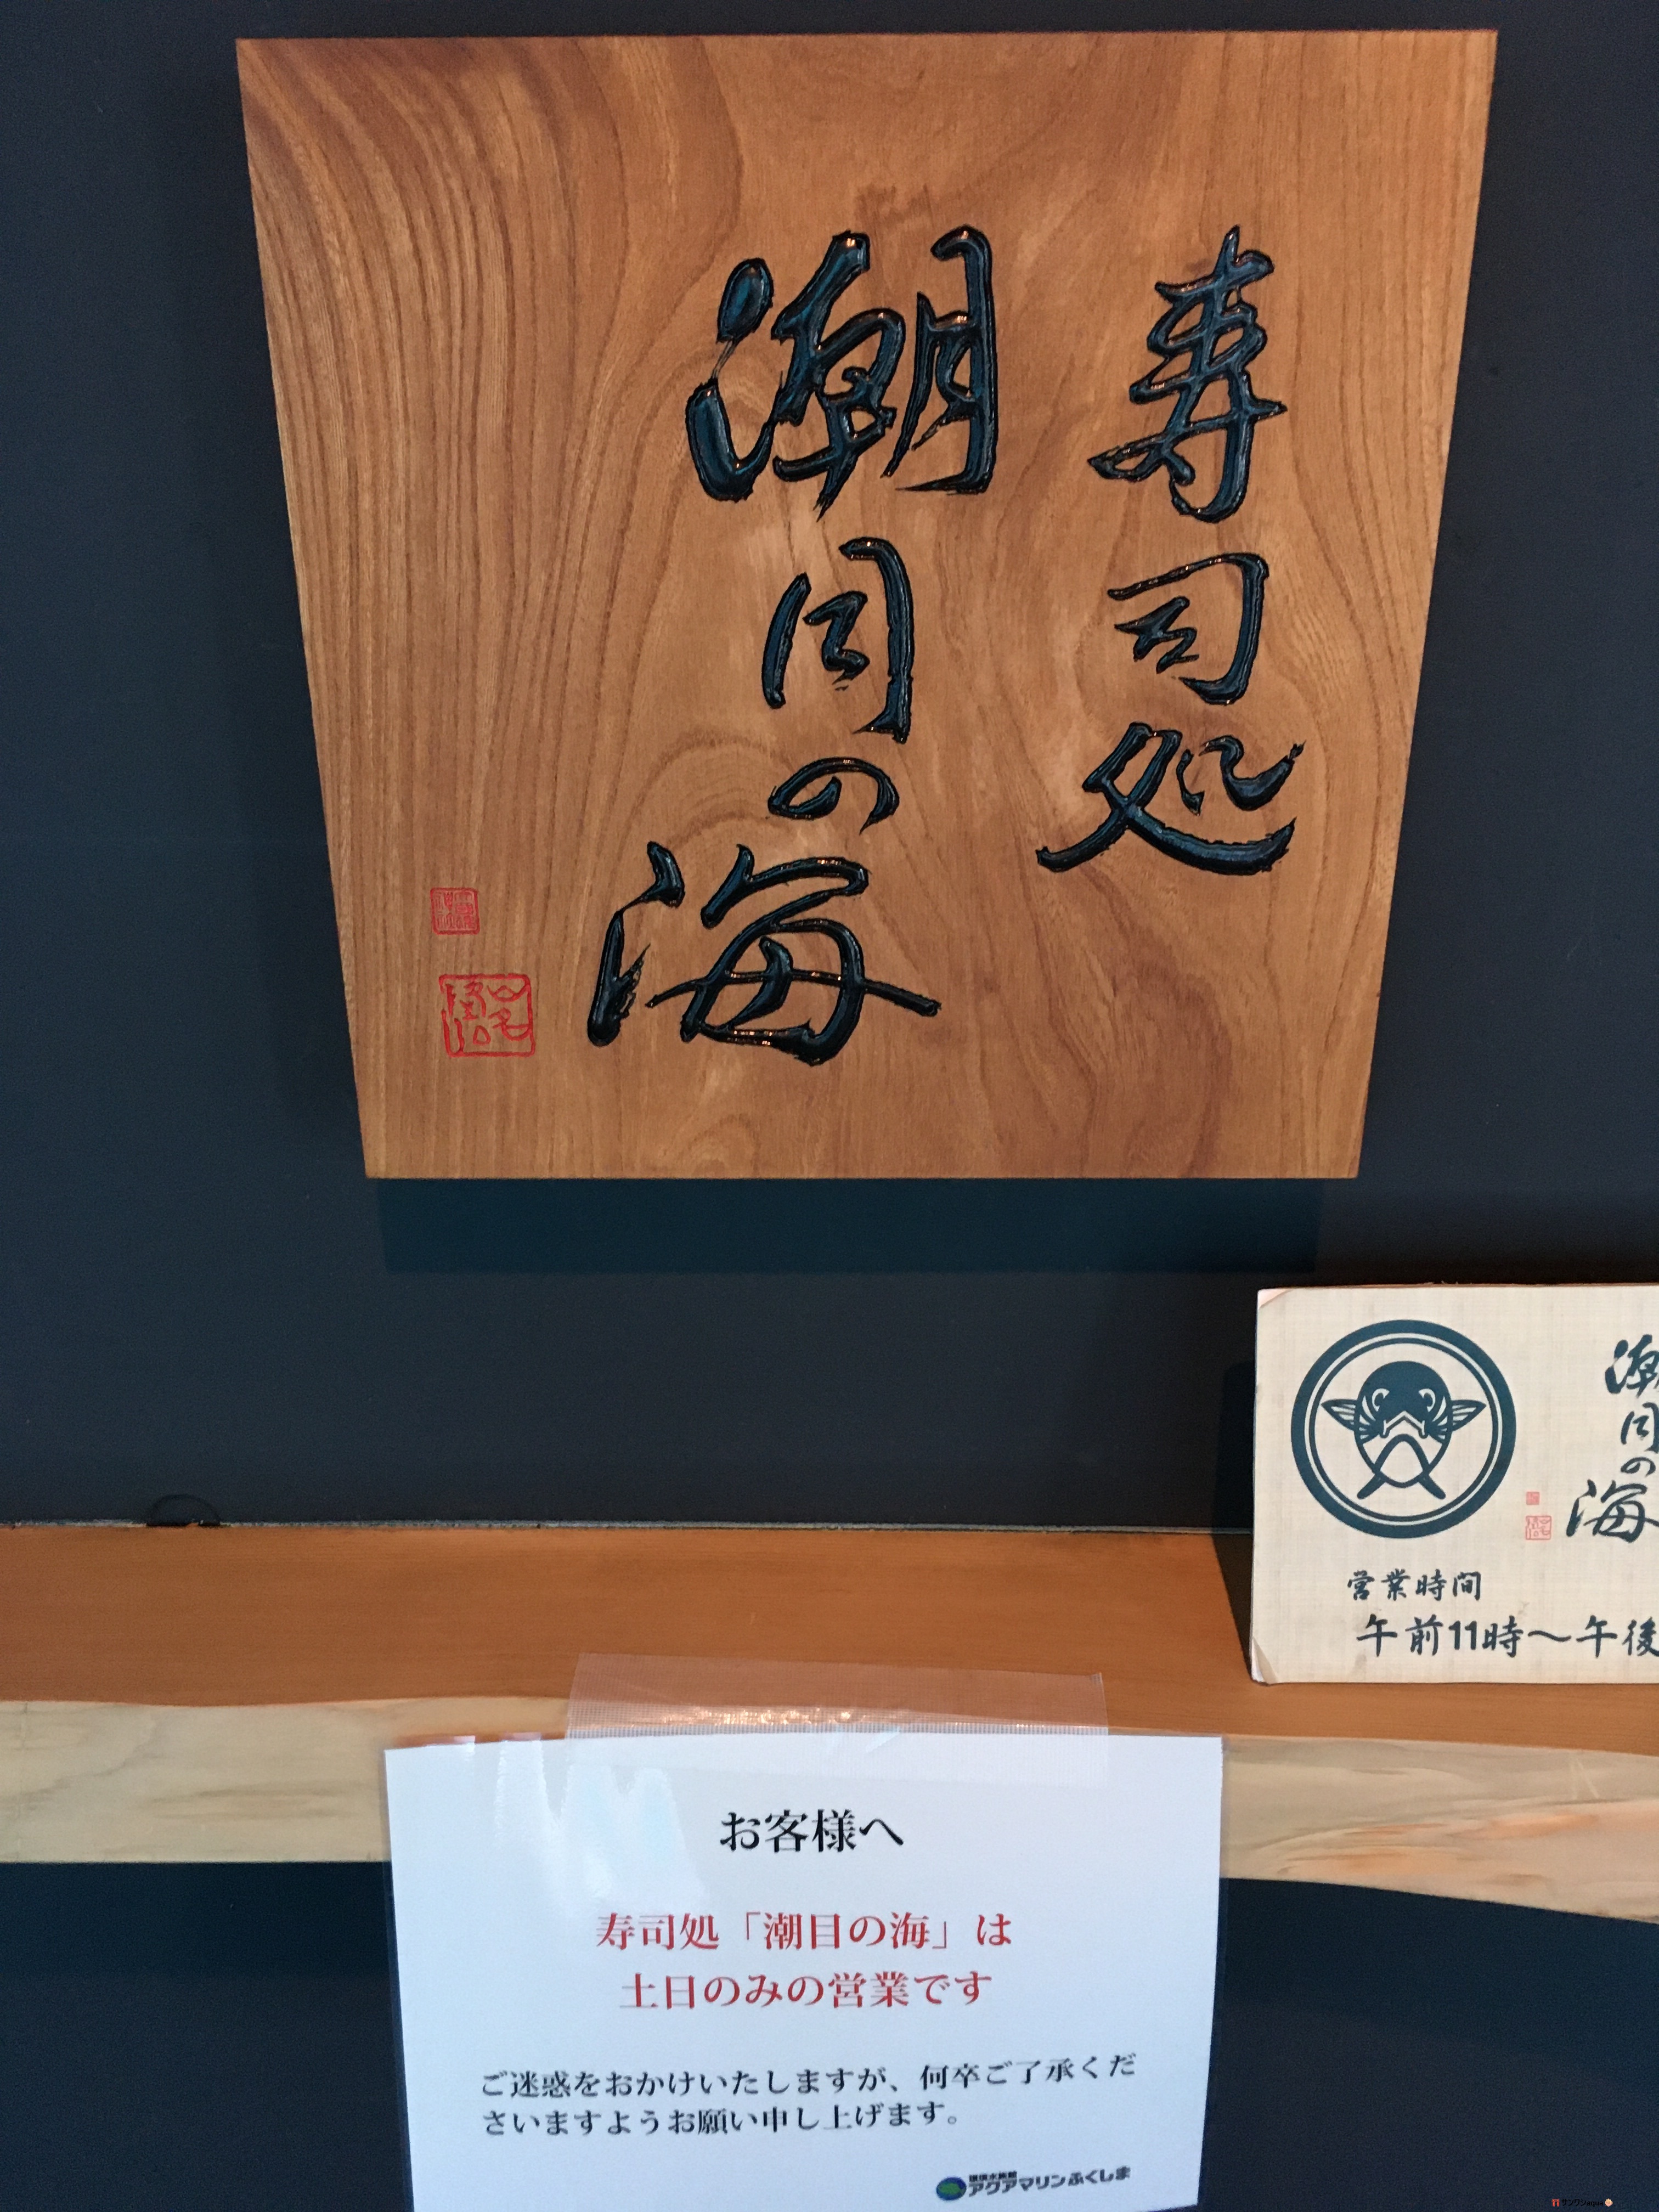 寿司処
潮目の海
潮
目
の
海
営業時間
午前11時～午後
お客様へ
寿司処「潮目の海」は
土日のみの営業です
ご迷惑をおかけいたしますが、何卒ご了承くだ
さいますようお願い申し上げます。
環境水族館
アクアマリンふくしま